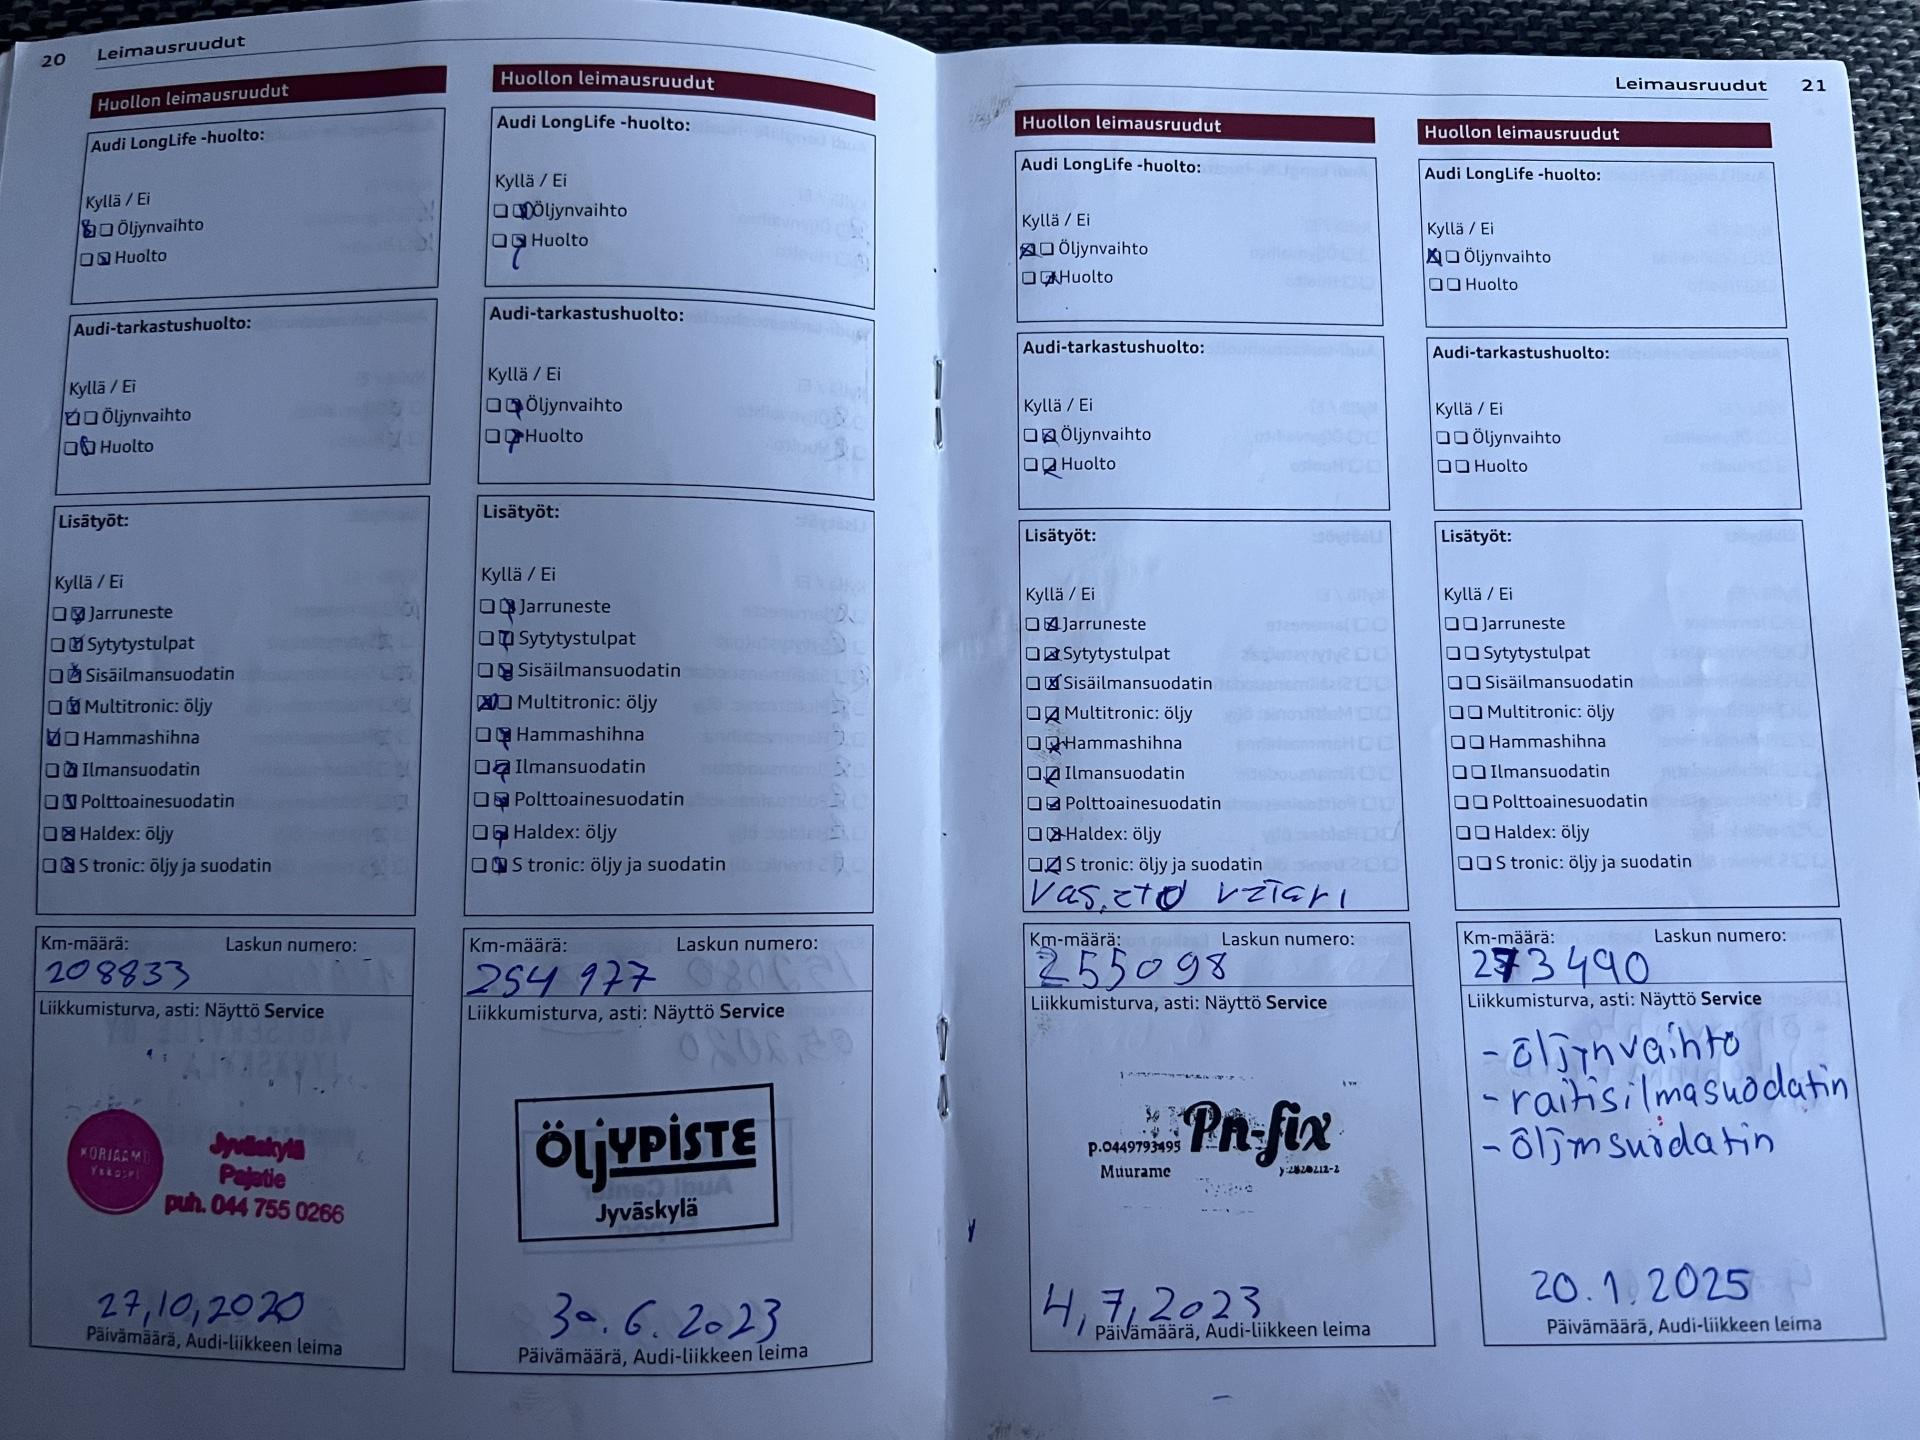 20 Leimausruudut
Huollon leimausruudut
Audi LongLife -huolto:
Kyllä / Ei
Öljynvaihto
Huolto
Audi-tarkastushuolto:
Kyllä / Ei
Öljynvaihto
Huolto
Lisätyöt:
Kyllä / Ei
Jarruneste
Sytytystulpat
Sisäilmansuodatin
Multitronic: öljy
Hammashihna
Ilmansuodatin
Polttoainesuodatin
Haldex: öljy
S tronic: öljy ja suodatin
Km-määrä: Laskun numero:
208833
Liikkumisturva, asti: Näyttö Service
KORJAAMO
Jyväskylä
Pajatie
puh. 044 755 0266
27,10,2020
Päivämäärä, Audi-liikkeen leima
Huollon leimausruudut
Audi LongLife -huolto:
Kyllä / Ei
Öljynvaihto
Huolto
Audi-tarkastushuolto:
Kyllä / Ei
Öljynvaihto
Huolto
Lisätyöt:
Kyllä / Ei
Jarruneste
Sytytystulpat
Sisäilmansuodatin
Multitronic: öljy
Hammashihna
Ilmansuodatin
Polttoainesuodatin
Haldex: öljy
S tronic: öljy ja suodatin
Km-määrä: Laskun numero:
254 977
Liikkumisturva, asti: Näyttö Service
ÖljYPiSTE
Jyväskylä
30.6.2023
Päivämäärä, Audi-liikkeen leima
Leimausruudut 21
Huollon leimausruudut
Audi LongLife -huolto:
Kyllä / Ei
Öljynvaihto
Huolto
Audi-tarkastushuolto:
Kyllä / Ei
Öljynvaihto
Huolto
Lisätyöt:
Kyllä / Ei
Jarruneste
Sytytystulpat
Sisäilmansuodatin
Multitronic: öljy
Hammashihna
Ilmansuodatin
Polttoainesuodatin
Haldex: öljy
S tronic: öljy ja suodatin
Km-määrä: Laskun numero:
255098
Liikkumisturva, asti: Näyttö Service
Pn-fix
p.0449793495
Muurame
4,7,2023
Päivämäärä, Audi-liikkeen leima
Huollon leimausruudut
Audi LongLife -huolto:
Kyllä / Ei
Öljynvaihto
Huolto
Audi-tarkastushuolto:
Kyllä / Ei
Öljynvaihto
Huolto
Lisätyöt:
Kyllä / Ei
Jarruneste
Sytytystulpat
Sisäilmansuodatin
Multitronic: öljy
Hammashihna
Ilmansuodatin
Polttoainesuodatin
Haldex: öljy
S tronic: öljy ja suodatin
Km-määrä: Laskun numero:
273490
Liikkumisturva, asti: Näyttö Service
- öljynvaihto
- raitisilmasuodatin
- öljynsuodatin
20.1.2025
Päivämäärä, Audi-liikkeen leima